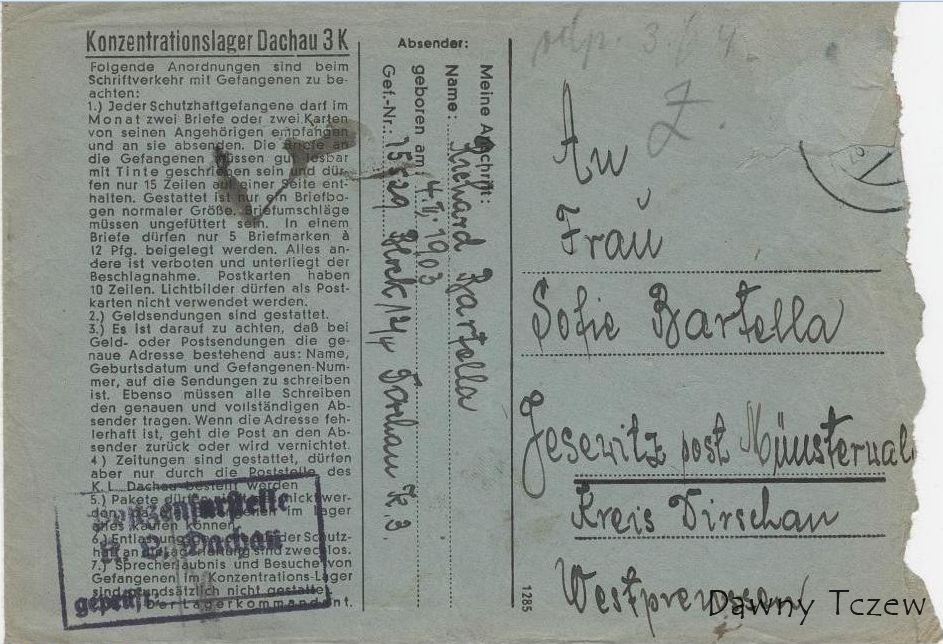 Konzentrationslager Dachau 3 K
Folgende Anordnungen sind beim
Schriftverkehr mit Gefangenen zu be-
achten:
1.) Jeder Schutzhaftgefangene darf im
Monat zwei Briefe oder zwei Karten
von seinen Angehörigen empfangen
und an sie absenden. Die Briefe an
die Gefangenen müssen gut lesbar
mit Tinte geschrieben sein und dür-
fen nur 15 Zeilen auf einer Seite ent-
halten. Gestattet ist nur ein Briefbo-
gen normaler Größe. Briefumschläge
müssen ungefüttert sein. In einem
Briefe dürfen nur 5 Briefmarken à
12 Pfg. beigelegt werden. Alles an-
dere ist verboten und unterliegt der
Beschlagnahme. Postkarten haben
10 Zeilen. Lichtbilder dürfen als Post-
karten nicht verwendet werden.
2.) Geldsendungen sind gestattet.
3.) Es ist darauf zu achten, daß bei
Geld- oder Postsendungen die ge-
naue Adresse bestehend aus: Name,
Geburtsdatum und Gefangenen-Num-
mer, auf die Sendungen zu schreiben
ist. Ebenso müssen alle Schreiben
den genauen und vollständigen Ab-
sender tragen. Wenn die Adresse feh-
lerhaft ist, geht die Post an den Ab-
sender zurück oder wird vernichtet.
4.) Zeitungen sind gestattet, dürfen
aber nur durch die Poststelle des
K. L. Dachau bestellt werden
5.) Pakete dürfen nicht
im Lager
alles kaufen können.
6.) Entlassungs der Schutz-
haft an die Lagerleitung sind zwecklos.
7.) Sprecherlaubnis und Besuche von
Gefangenen im Konzentrations-Lager
sind grundsätzlich nicht gestattet.
Der Lagerkommandant.
Postzensurstelle
K. L. Dachau
geprüft
Absender:
Meine Anschrift:
Name: Richard Bartella
geboren am: 4.II.1903
Gef.-Nr.: 15529 Block 14/4 Dachau K. 3
1285
3. 4.
Z.
An
Frau
Sofie Bartella
Jesewitz post Münsterwal
Kreis Dirschau
Westpreussen
Dawny Tczew